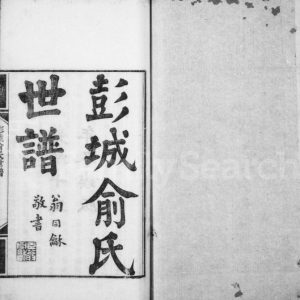 彭城俞氏
世譜
翁同龢
敬書